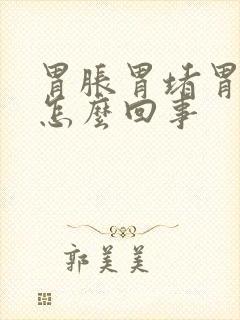 胃脹胃堵胃
怎麼回事
郭美美